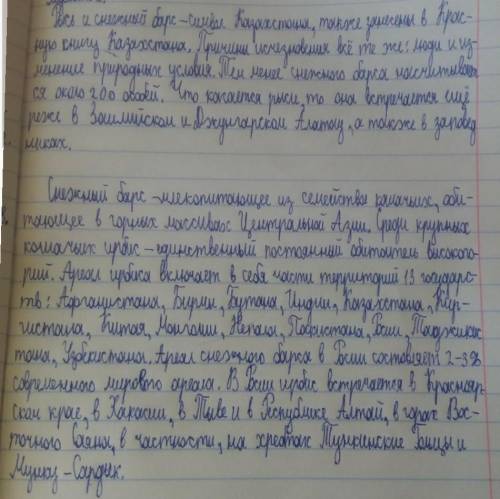 Рысь и снежный барс-символ Казахстана, также занесены в Крас-
ную книгу Казахстана. Причины исчезновения всё те же: люди и из-
менение природных условия. Тем менее снежного барса насчитывает
ся около 200 особей. Что касается рыси, то она встречается ещё
реже в Заилийском и Джунгарском Алатау, а также в заповед
никах.
Снежный барс-млекопитающее из семейства кошачьих, оби-
тающее в горных массивах Центральной Азии. Среди крупных
кошачьих ирбис-единственный постоянный обитатель высокого-
рий. Ареал ирбиса включает в себя части территорий 13 государс-
тв: Афганистана, Бирмы, Бутана, Индии, Казахстана, Кир-
гистана, Китая, Монголии, Непала, Пакистана, России, Таджикис
тана, Узбекистана. Ареал снежного барса в России составляет 2-3%
современного мирового ареала. В России ирбис встречается в Краснояр-
ском крае, в Хакасии, в Тыве и в Республике Алтай, в горах Вос-
точного Саяна, в частности, на хребтах Тункинские Гольцы и
Мунку-Сардык.